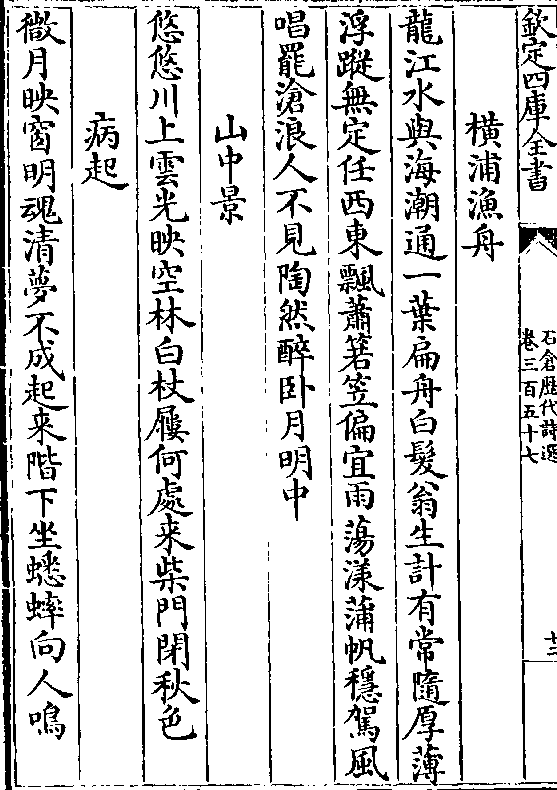 欽定四庫全書
石倉歷代詩選
卷三百五十七
十二
橫浦漁舟
龍江水與海潮通一葉扁舟白髮翁生計有常隨厚薄
浮蹤無定任西東飄蕭箬笠偏宜雨蕩漾蒲帆穩駕風
唱罷滄浪人不見陶然醉卧月明中
山中景
悠悠川上雲光映空林白杖屨何處来柴門閉秋色
病起
微月映窗明魂清夢不成起来階下坐蟋蟀向人鳴